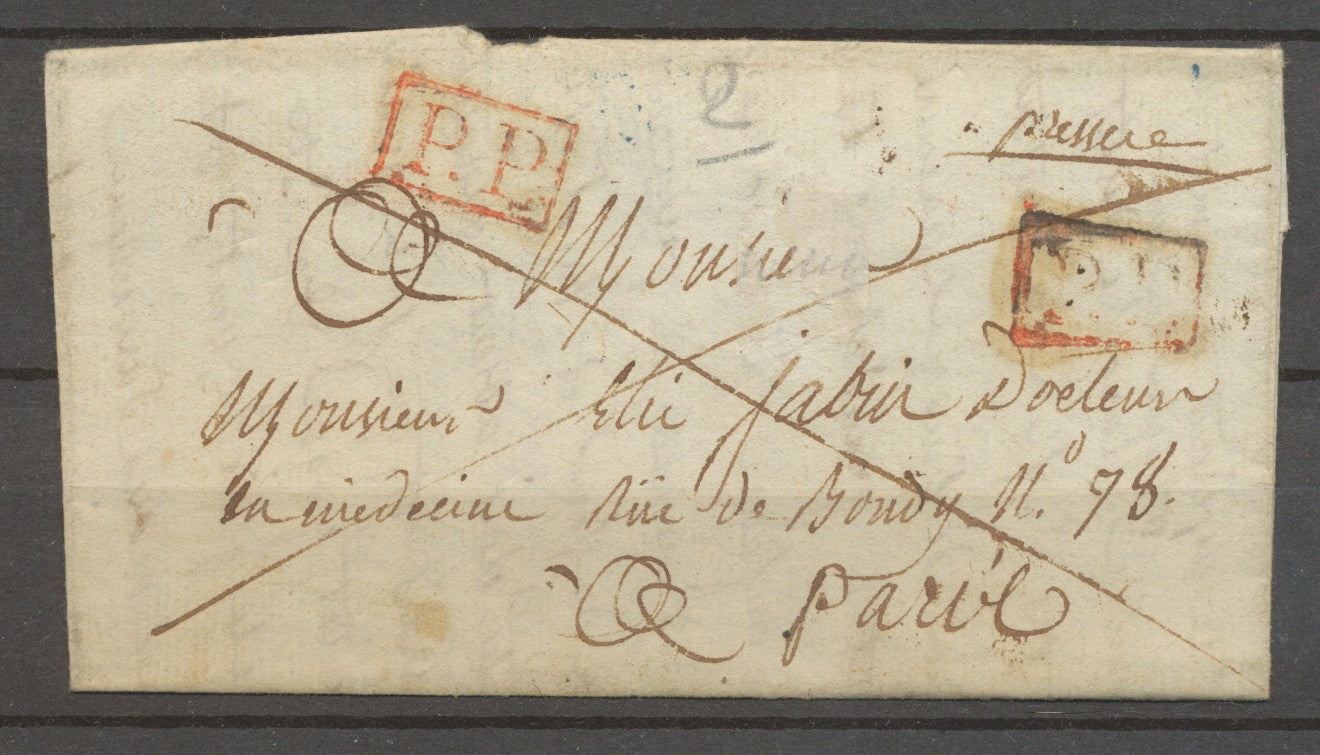 2
P.P
pressée
A Monsieur
P.P
Monsieur Elie Jabin Docteur
en médecine Rüe de Bondy N.º 78.
A Paris